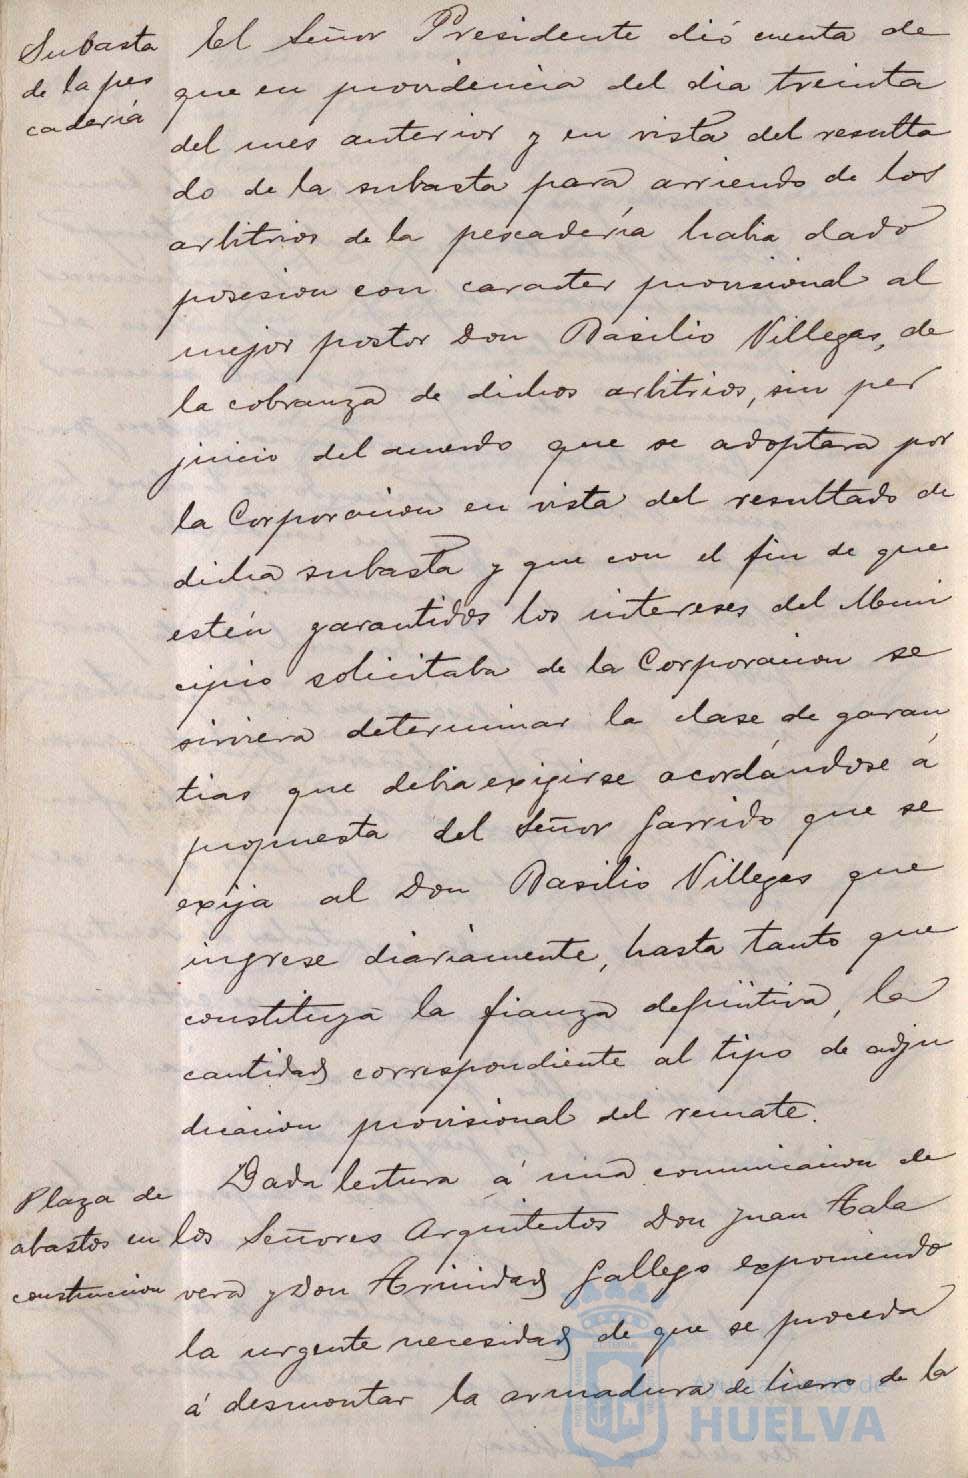 Subasta
de la pes
cadería
El Señor Presidente dió cuenta de
que en providencia del dia treinta
del mes anterior y en vista del resulta
do de la subasta para arriendo de los
arbitrios de la pescadería habia dado
posesion con caracter provisional al
mejor postor Don Basilio Villegas, de
la cobranza de dichos arbitrios, sin per
juicio del acuerdo que se adoptara por
la Corporacion en vista del resultado de
dicha subasta y que con el fin de que
estén garantidos los intereses del Muni
cipio solicitaba de la Corporacion se
sirviera determinar la clase de garan
tias que debia exigirse acordándose á
propuesta del Señor Garrido que se
exija al Don Basilio Villegas que
ingrese diariamente, hasta tanto que
constituya la fianza definitiva, la
cantidad correspondiente al tipo de adju
dicacion provisional del remate.
Plaza de
abastos en
construccion
Dada lectura á una comunicacion de
los Señores Arquitectos Don Juan Tala
vera y Don Trinidad Gallego exponiendo
la urgente necesidad de que se proceda
á desmontar la armadura de hierro de la
Ayuntamiento de
HUELVA